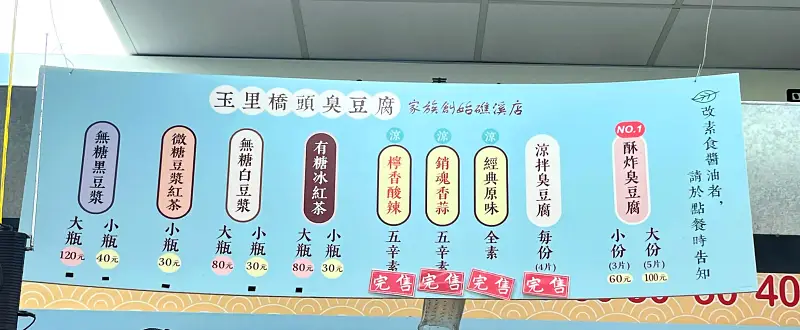 玉里橋頭臭豆腐 家族創始礁溪店
改素食醬油者，
請於點餐時告知
NO.1
酥炸臭豆腐
大份
(5片)
100元
小份
(3片)
60元
涼拌臭豆腐
每份
(4片)
完售
涼
經典原味
全素
完售
涼
銷魂香蒜
五辛素
完售
涼
檸香酸辣
五辛素
完售
有糖冰紅茶
小瓶
30元
大瓶
80元
無糖白豆漿
小瓶
30元
大瓶
80元
微糖豆漿紅茶
小瓶
30元
無糖黑豆漿
小瓶
40元
大瓶
120元
40